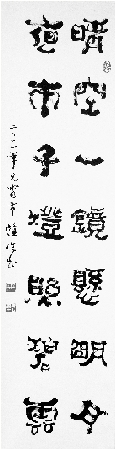 晴空一鏡懸明月
夜市千燈照碧雲
二〇一一年元宵